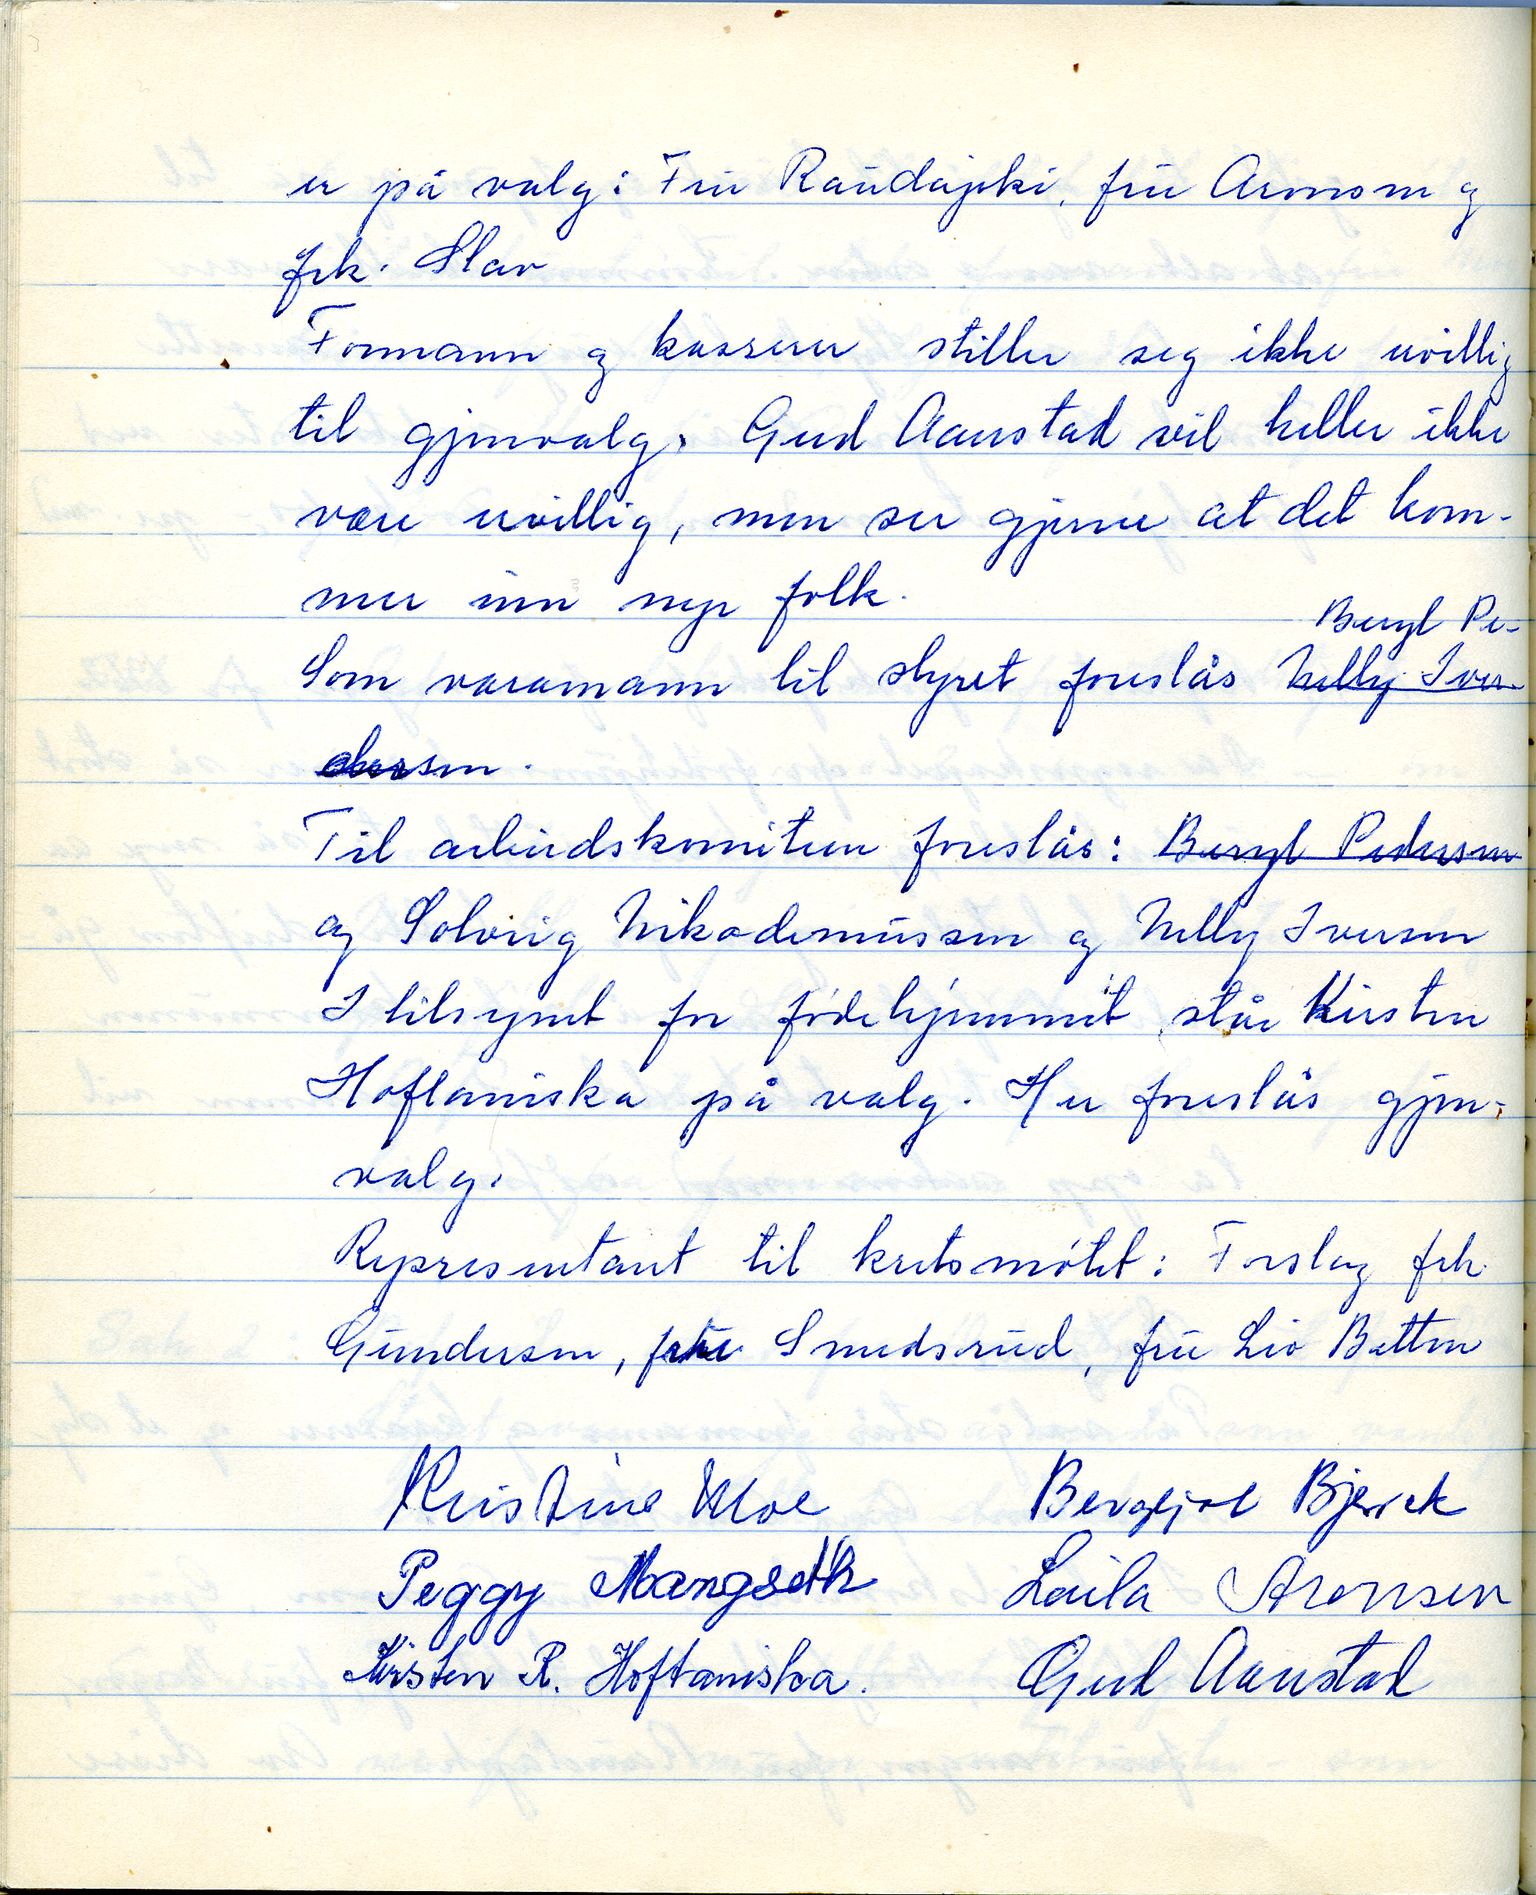 er på valg: Fru Raudajoki, fru Aronsen og
frk. Slav
Formann og kasserer stiller seg ikke uvillig
til gjenvalg. Gud Aanstad vil heller ikke
være uvillig, men ser gjerne at det kom-
mer inn nye folk.
Beryl Pe-
Som varamann til styret foreslås Nelly Iver
dersen.
Til arbeidskomiteen foreslås: Beryl Pedersen
og Solveig Nikodemussen og Nelly Iversen
I tilsynet for fødehjemmet står Kirsten
Hoftaniska på valg. Her foreslås gjen-
valg.
Representant til kretsmøtet: Forslag frk.
Gundersen, fru Smedsrud, fru Liv Betten
Kristine Moe Bergljot Bjervek
Peggy Mangseth Laila Aronsen
Kirsten R. Hoftaniska. Gud Aanstad